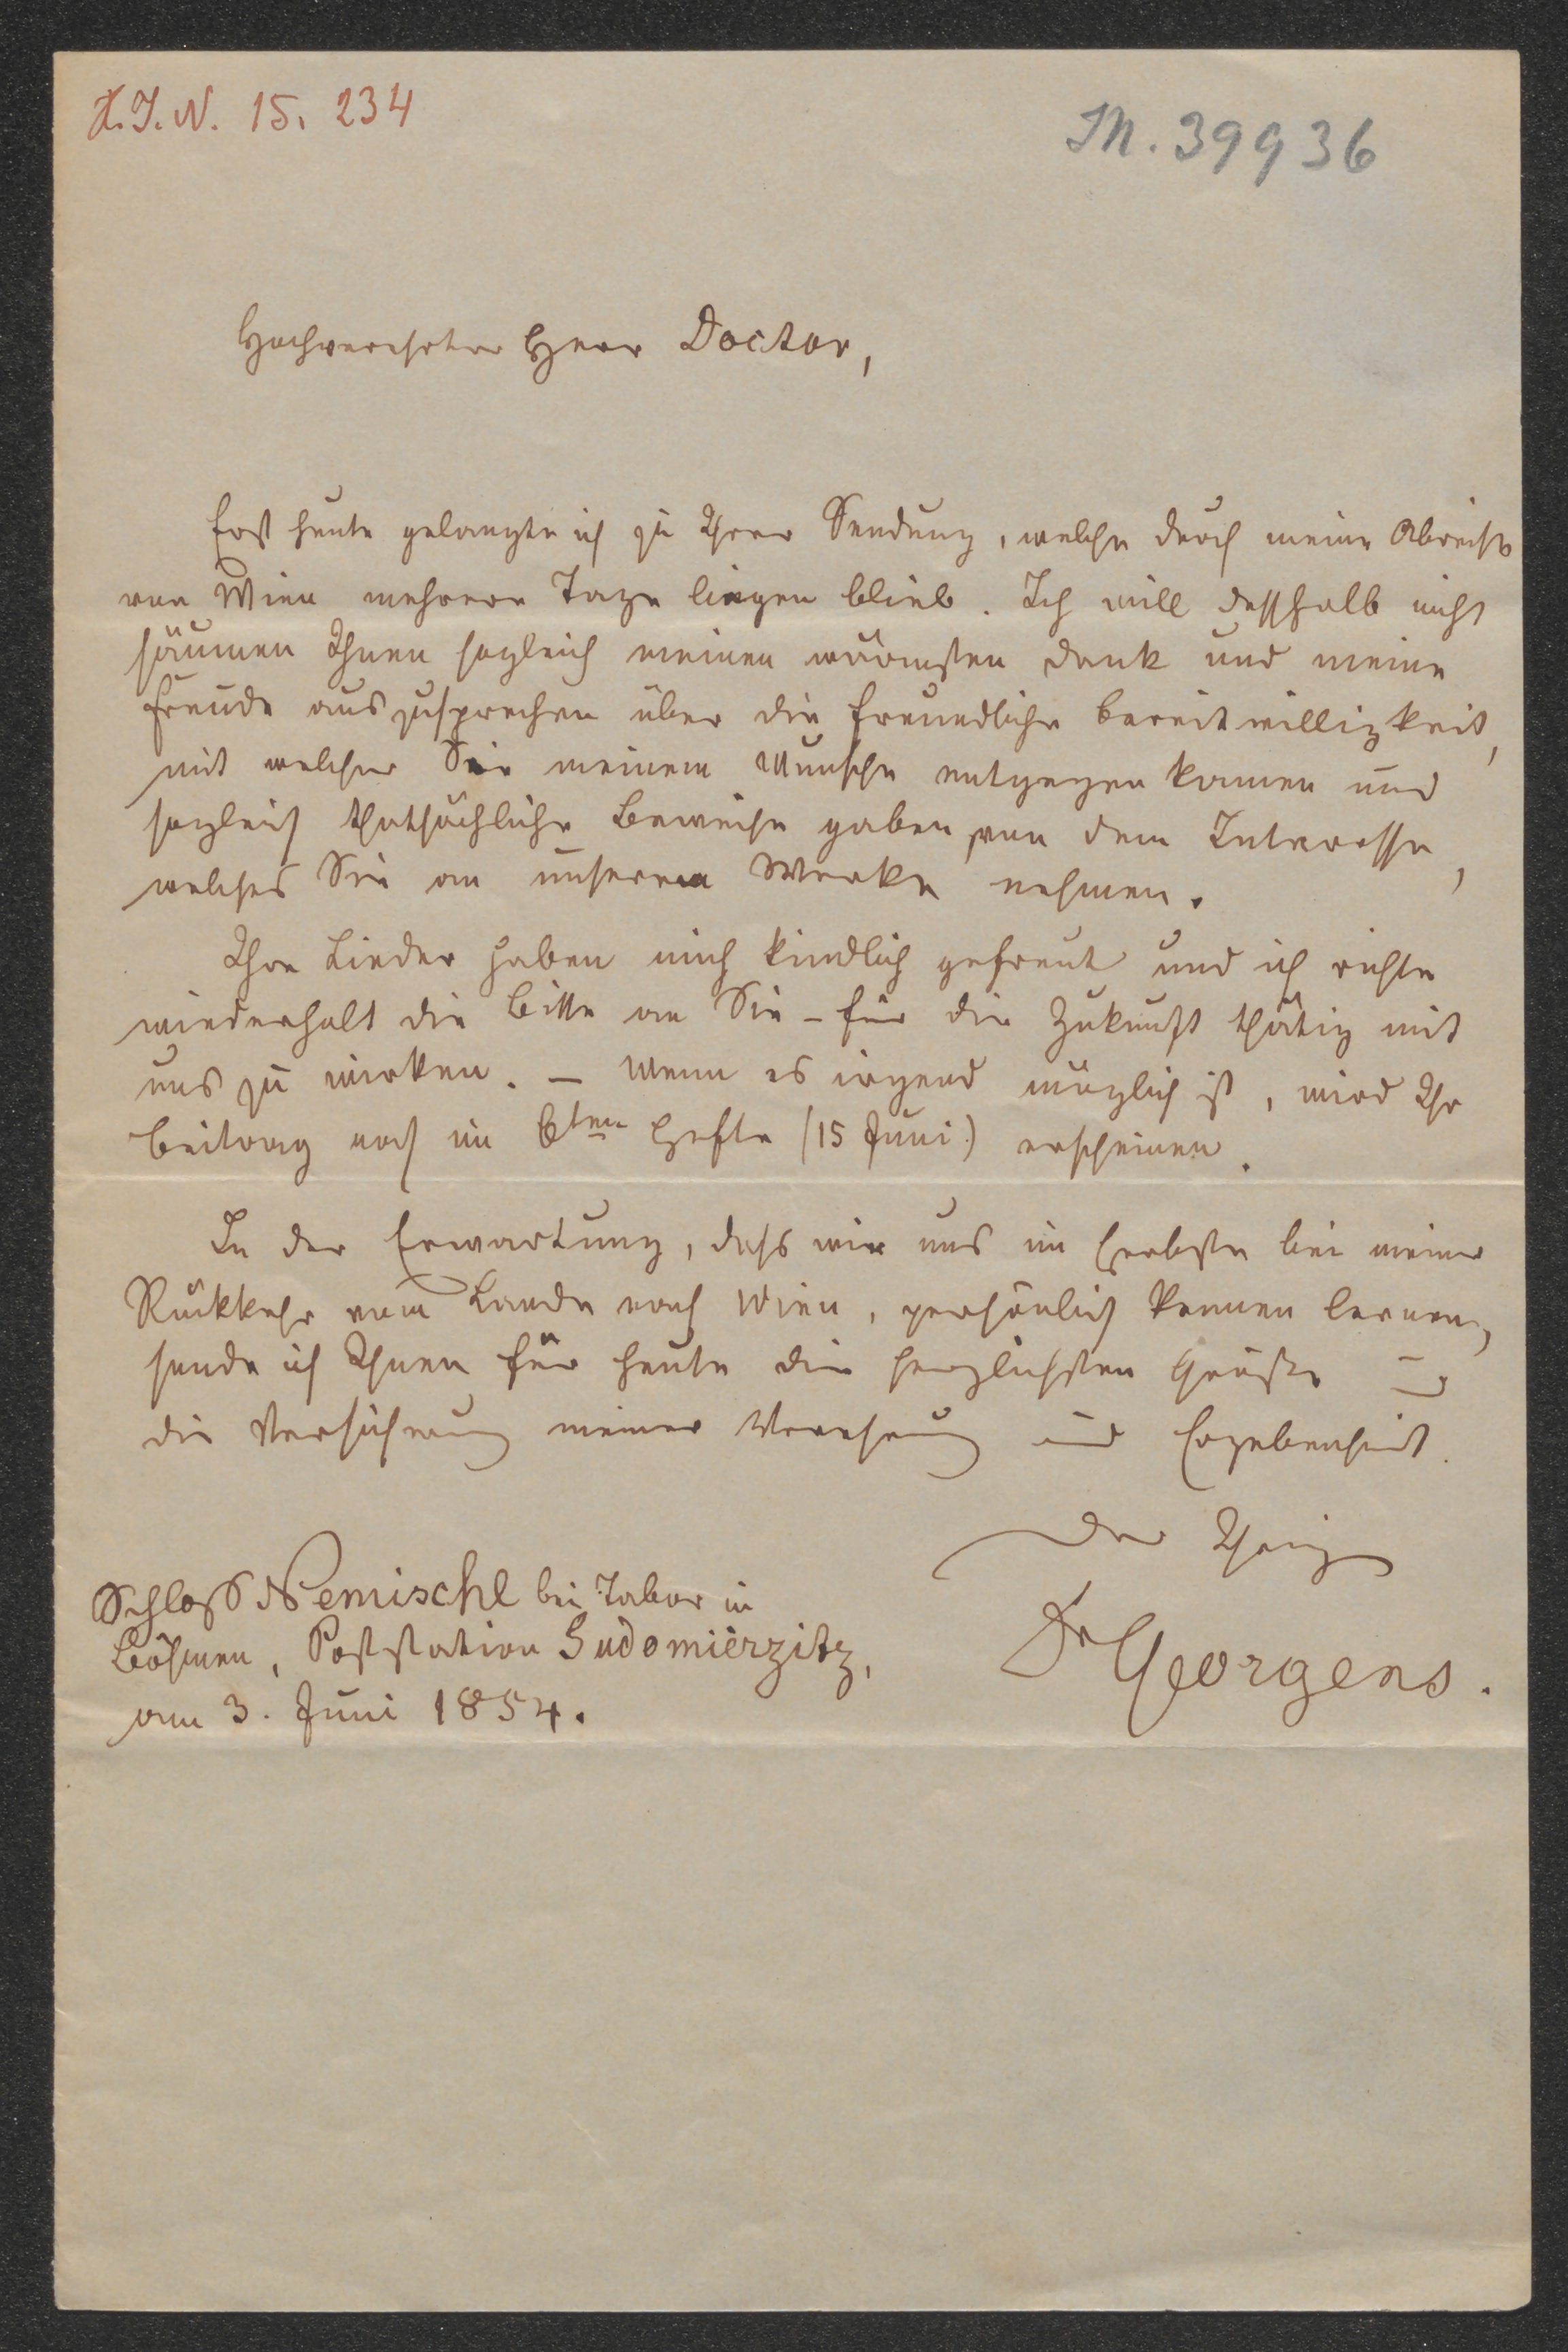 H.I.N. 15.234
Th. 39936
Hochverehrter Herr Doctor,
Erst heute gelangte ich zu Ihrer Sendung, welche durch meine Abreise
von Wien mehrere Tage liegen blieb. Ich will desshalb nicht
säumen Ihnen sogleich meinen wärmsten Dank und meine
Freude auszusprechen über die freundliche Bereitwilligkeit,
mit welcher Sie meinem Wunsche entgegen kamen und
sogleich thatsächliche Beweise gaben von dem Interesse,
welches Sie an unserem Werke nehmen.
Ihre Lieder haben mich kindlich gefreut und ich richte
wiederholt die Bitte an Sie – für die Zukunft thätig mit
uns zu wirken. – Wenn es irgend möglich ist, wird Ihr
Beitrag noch im 6ten Hefte (15 Juni) erscheinen.
In der Erwartung, dass wir uns im Herbste bei meiner
Rückkehr vom Lande nach Wien, persönlich kennen lernen,
sende ich Ihnen für heute die herzlichsten Grüße und
die Versicherung meiner Verehrung und Ergebenheit.
Der Ihrige
Dr Georgens.
Schloß Nemischl bei Tabor in
Böhmen, Poststation Sudomiěrzitz,
am 3. Juni 1854.